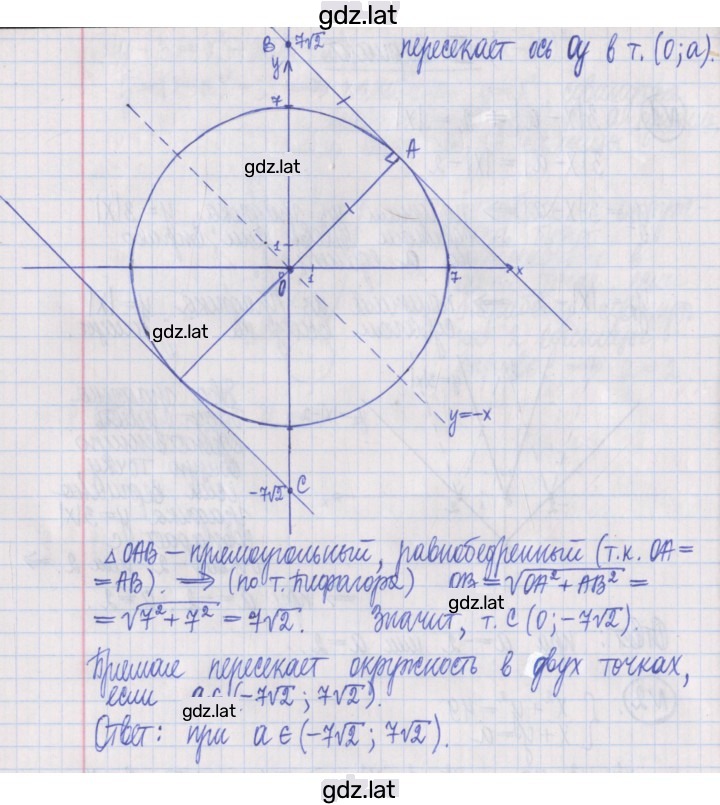 gdz.lat
B 7√2 пересекает ось Oy в т. (0; a).
y
7
A
gdz.lat
1
0 1 7 x
gdz.lat
y=-x
-7√2 C
△OAB – прямоугольный, равнобедренный (т.к. OA =
= AB). ⟹ (по т. Пифагора) OB = √OA² + AB² =
gdz.lat
= √7² + 7² = 7√2. Значит, т. C (0; -7√2).
Прямая пересекает окружность в двух точках,
если a ∈ (-7√2; 7√2).
gdz.lat
Ответ: при a ∈ (-7√2; 7√2).
gdz.lat